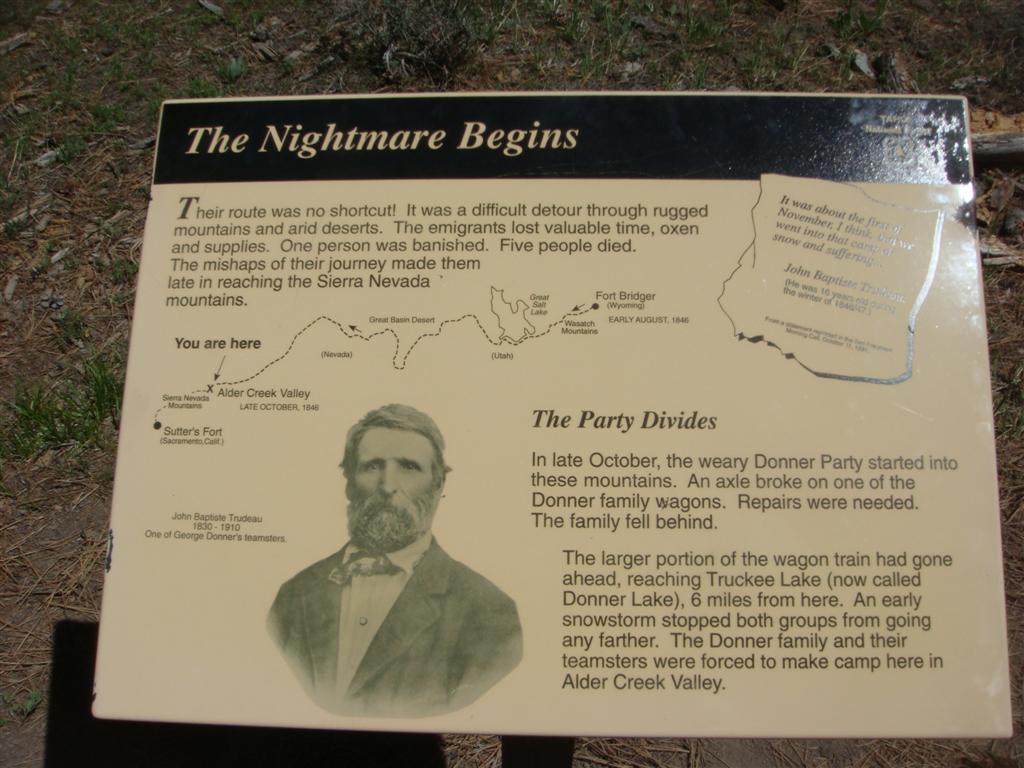 The Nightmare Begins
TAHOE
National Forest
Their route was no shortcut! It was a difficult detour through rugged
mountains and arid deserts. The emigrants lost valuable time, oxen
and supplies. One person was banished. Five people died.
The mishaps of their journey made them
late in reaching the Sierra Nevada
mountains.
It was about the first of
November, I think, that we
went into that camp of
snow and suffering...
John Baptiste Trudeau,
(He was 16 years old during
the winter of 1846/47.)
From a statement reported in the San Francisco
Morning Call, October 11, 1891.
Fort Bridger
(Wyoming)
EARLY AUGUST, 1846
Great
Salt
Lake
Wasatch
Mountains
(Utah)
Great Basin Desert
(Nevada)
You are here
X Alder Creek Valley
LATE OCTOBER, 1846
Sierra Nevada
Mountains
Sutter's Fort
(Sacramento,Calif.)
John Baptiste Trudeau
1830 - 1910
One of George Donner's teamsters.
The Party Divides
In late October, the weary Donner Party started into
these mountains. An axle broke on one of the
Donner family wagons. Repairs were needed.
The family fell behind.
The larger portion of the wagon train had gone
ahead, reaching Truckee Lake (now called
Donner Lake), 6 miles from here. An early
snowstorm stopped both groups from going
any farther. The Donner family and their
teamsters were forced to make camp here in
Alder Creek Valley.